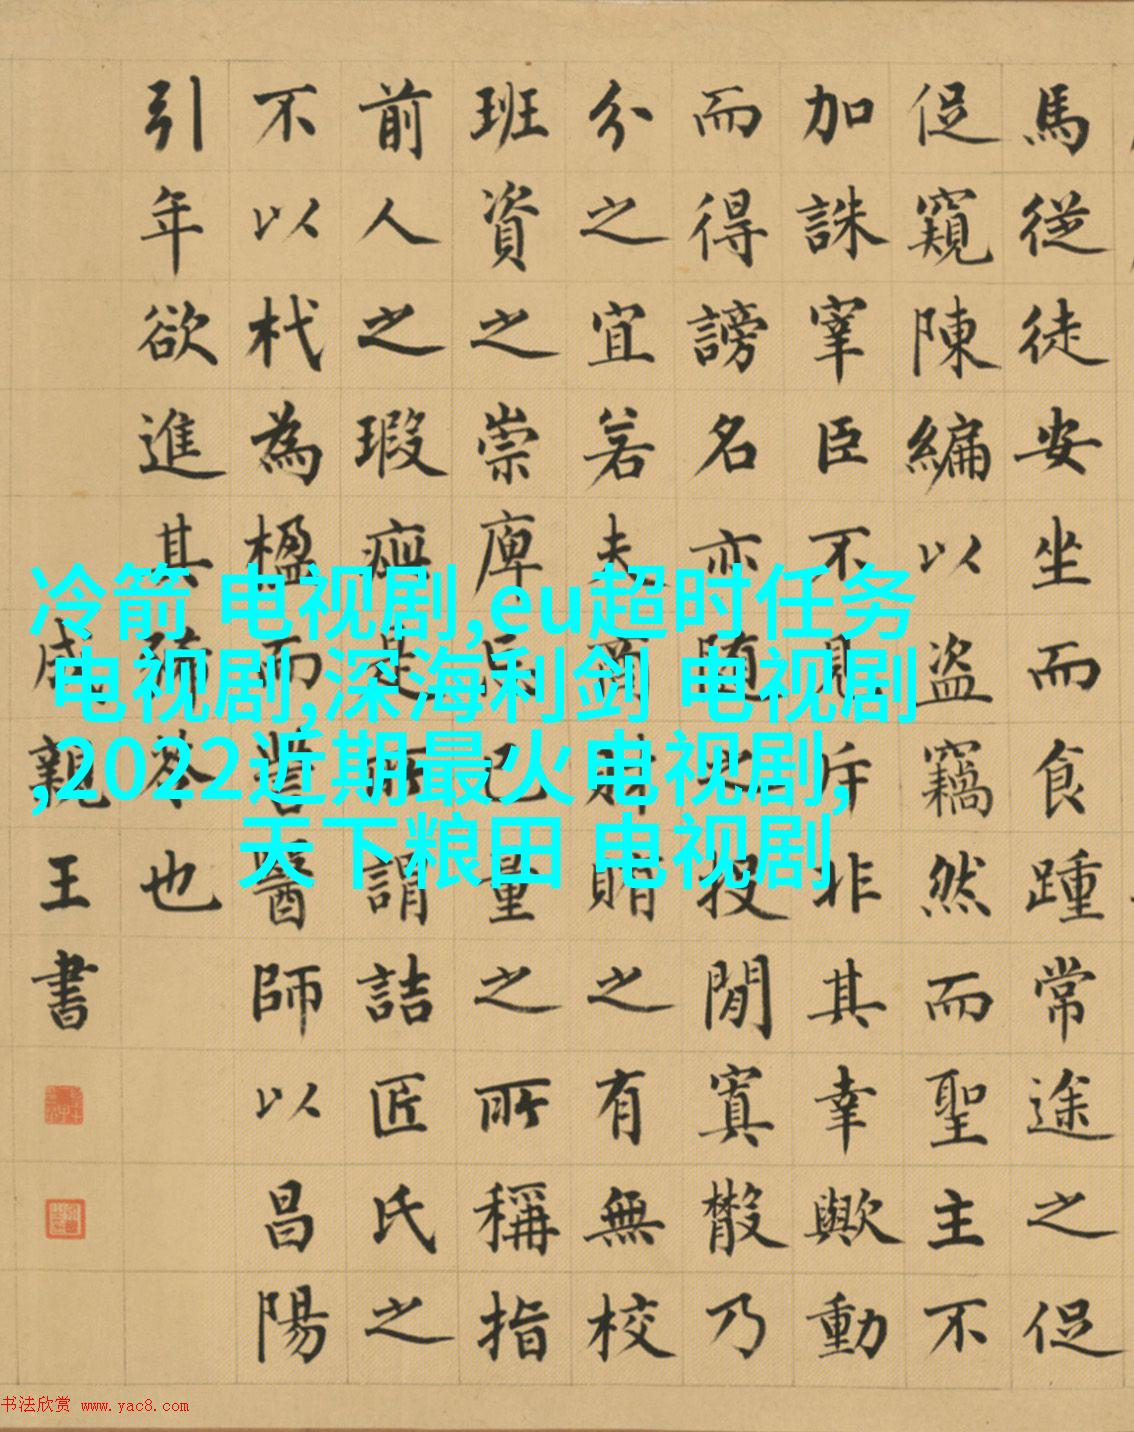 馬從徒安坐而食踵常途之促
促窺陳編以盜竊然而聖主不
加誅宰臣不見斥非其幸歟動
而得謗名亦隨之投閒寘散乃
分之宜若夫商財賄之有無校
班資之崇庳忘己量之所稱指
前人之瑕疵是所謂詰匠氏之
不以杙為楹而訾醫師以昌陽
引年欲進其豨苓也
成親王書
冷箭 电视剧,eu超时任务
电视剧,深海利剑 电视剧
,2022近期最火电视剧,
天下粮田 电视剧
书法欣赏 www.yac8.com